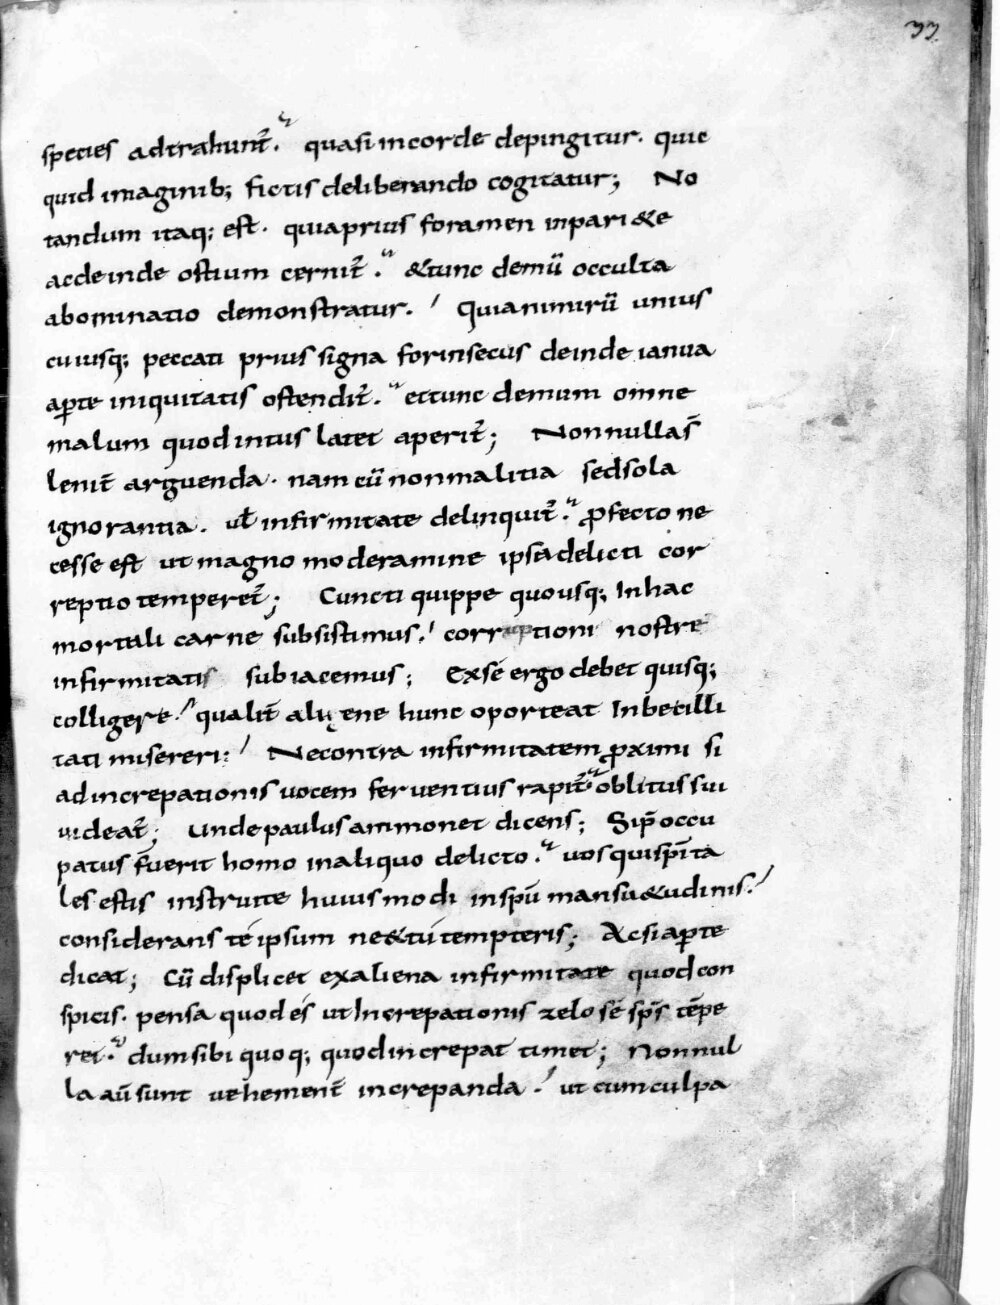 33
species adtrahunt̃. quasi incorde depingitur. quic
quid imaginib; fictis deliberando cogitatur; No
tandum itaq; est. quiaprius foramen inpari&e
acdeinde ostium cernit̃. &tunc demũ occulta
abominatio demonstratur. Quianimirũ unius
cuiusq; peccati prius signa forinsecus deinde ianua
aꝑte iniquitatis ostendit̃. ettunc demum omne
malum quod intus latet aperit̃; Nonnulla s̃
lenit̃ arguenda. nam cũ nonmalitia sedsola
ignorantia. ul̃ infirmitate delinquit̃. ꝓfecto ne
cesse est ut magno moderamine ipsa delicti cor
reptio temperet̃; Cuncti quippe quousq; Inhac
mortali carne subsistimus. corruptioni nostre
infirmitatis subiacemus; Exsé ergo debet quisq;
colligere. qualit̃ alienę hunc oporteat Inbecilli
tati misereri; Necontra infirmitatem ꝓximi si
adincrepationis uocem feruentius rapit̃ oblitus sui
uideat̃; Unde paulus ammonet dicens; Sip̃occu
patus f̃uerit homo inaliquo delicto. uos quisp̃ita
les estis instruite huiusmodi insp̃u mansu&udinis.
considerans té ipsum ne&tú tempteris; Acsi aꝑte
dicat; Cũ displicet exaliena infirmitate quod con
spicis. pensa quod és ut Increpationis zelo sé sp̃s tẽpe
ret. dumsibi quoq; quod increpat timet; Nonnul
la aũ sunt uehement̃ increpanda. ut cum culpa